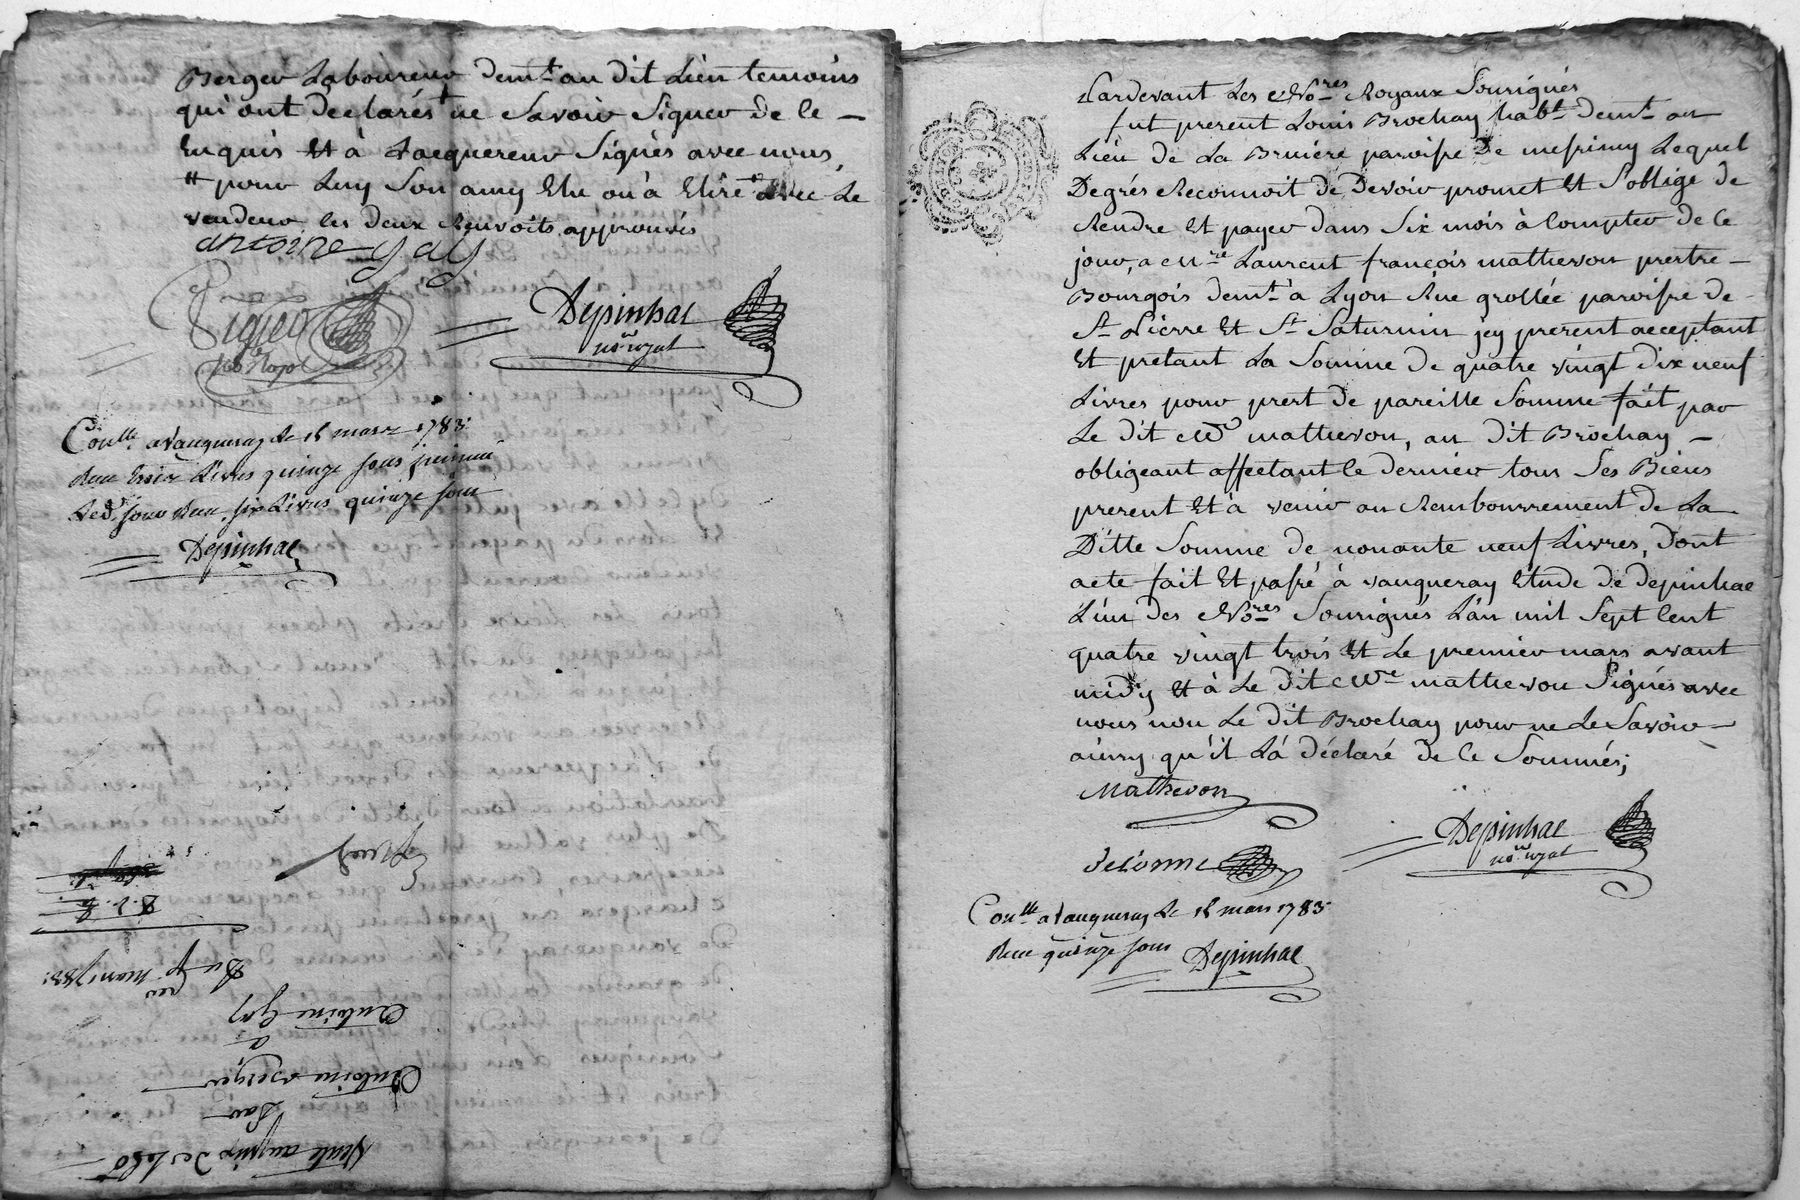 Berger Laboureur demt. au dit Lieu temoins
qui ont declarés + ne Savoir Signer de ce
Enquis Et à Lacquereur Signés avec nous,
# pour Luy Son amy Elu ou à Elire avec Le
vendeur les deux Renvoits approuvés
antoine gay
Depinhac
no.re royal
Conlle. a Vaugneray Le 15 mars 1783
Reçu treize Livres quinze sous
Led. jour Reçu six Livres quinze sous
Depinhac
Du 1er mars 1783
Antoine Gay
a
Antoine Berger
Par
Vente au prix de
Pardevant Les No.res Royaux Sousignés
fut present Louis Brochay habt. demt. au
Lieu de La Bruiére paroisse de messimy Lequel
Degrés Reconnoit de Devoir promet Et S'oblige de
Rendre Et payer dans Six mois à Compter de ce
jour, a Mre. Laurent françois mathevon prestre
Bourgois demt. à Lyon Rue grollée paroisse de
St. Pierre Et St. Saturnin jcy present acceptant
Et pretant La Somme de quatre vingt Dix neuf
Livres pour prest de pareille Somme fait par
Le dit Mr. mathevon, au dit Brochay
obligeant affectant le dernier tous Ses Biens
present Et à venir au Rembourrement de La
Ditte Somme de nonante neuf Livres, Dont
acte fait Et passé à vaugneray Etude de depinhac
L'un des No.res Sousignés L'an mil Sept Cent
quatre vingt trois Et Le premier mars avant
midy Et à Le dit Mre. mathevon Signés avec
nous non Le dit Brochay pour ne Le Savoir
ainsy qu'il La déclaré de Ce Sommés;
Mathevon
Depinhac
no.re royal
delorme
Conlle. a Vaugneray Le 15 mars 1783
Reçu quinze sous Depinhac